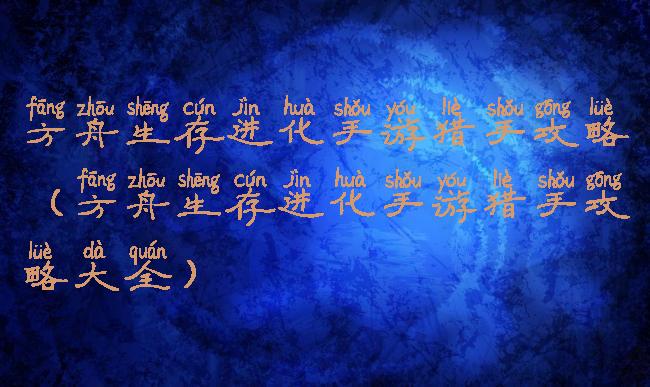 fāng zhōu shēng cún jìn huà shǒu yóu liè shǒu gōng lüè
方舟生存进化手游猎手攻略
fāng zhōu shēng cún jìn huà shǒu yóu liè shǒu gōng
（方舟生存进化手游猎手攻
lüè dà quán
略大全）